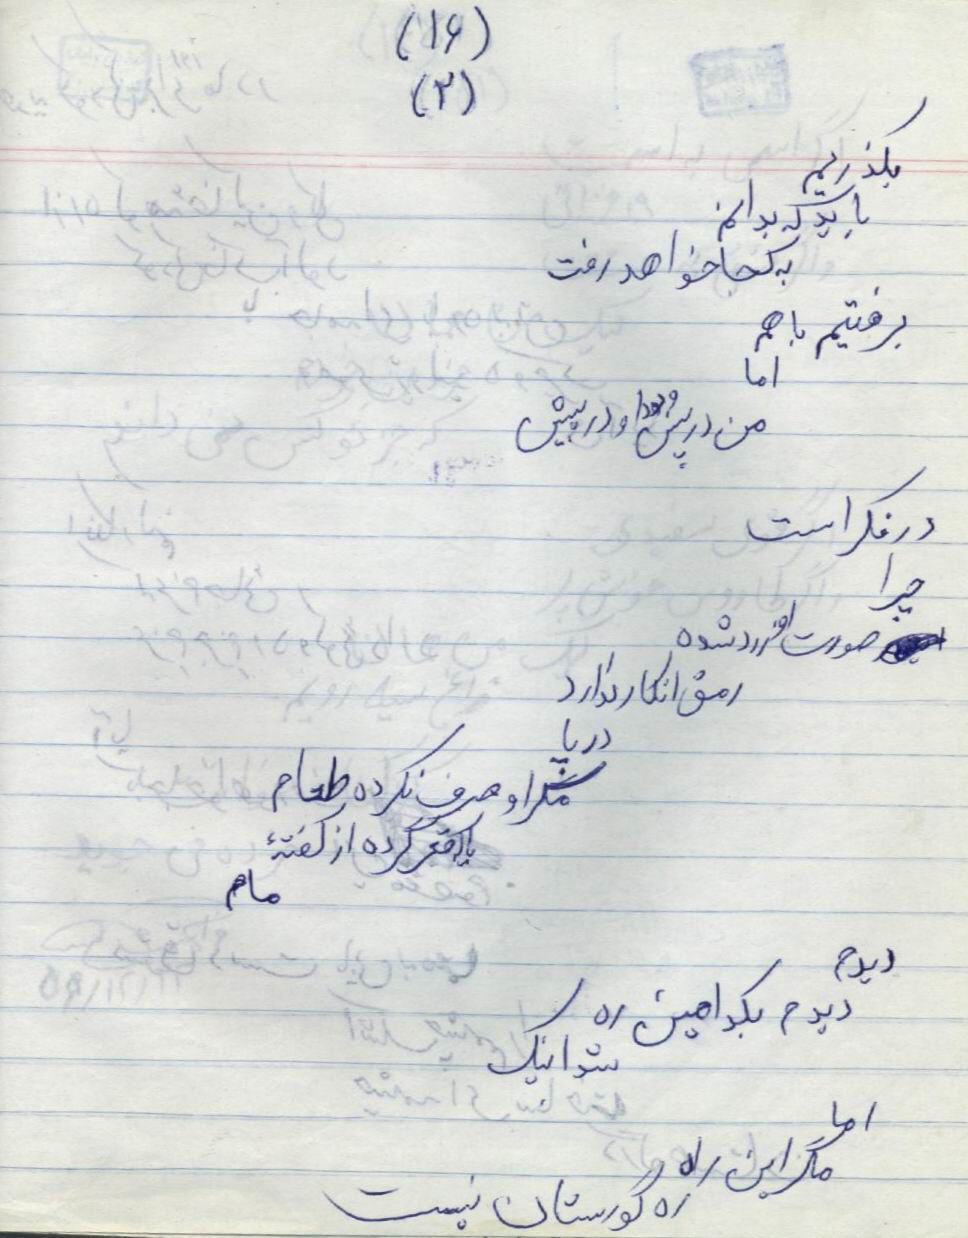 (۱۶)
(۲)
بگذریم
باید که بدانم
به کجا خواهد رفت
برفتیم با هم
اما
من در پس و او در پیش
در فکر است
چرا
صورت او زرد شده
رمق انکار ندارد
دریا
مگر او صرف نکرده طعام
یا قهر کرده از گفتهٔ
مام
دیدم
دیدم بکدامین ره
شد اینک
اما
مگر این راه
ره گورستان نیست